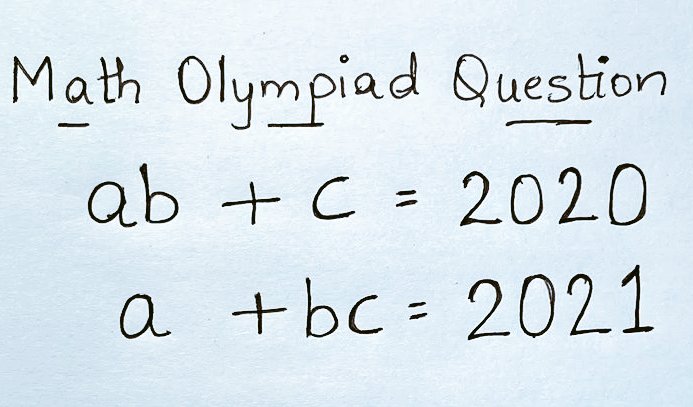 Math Olympiad Question
ab + c = 2020
a + bc = 2021